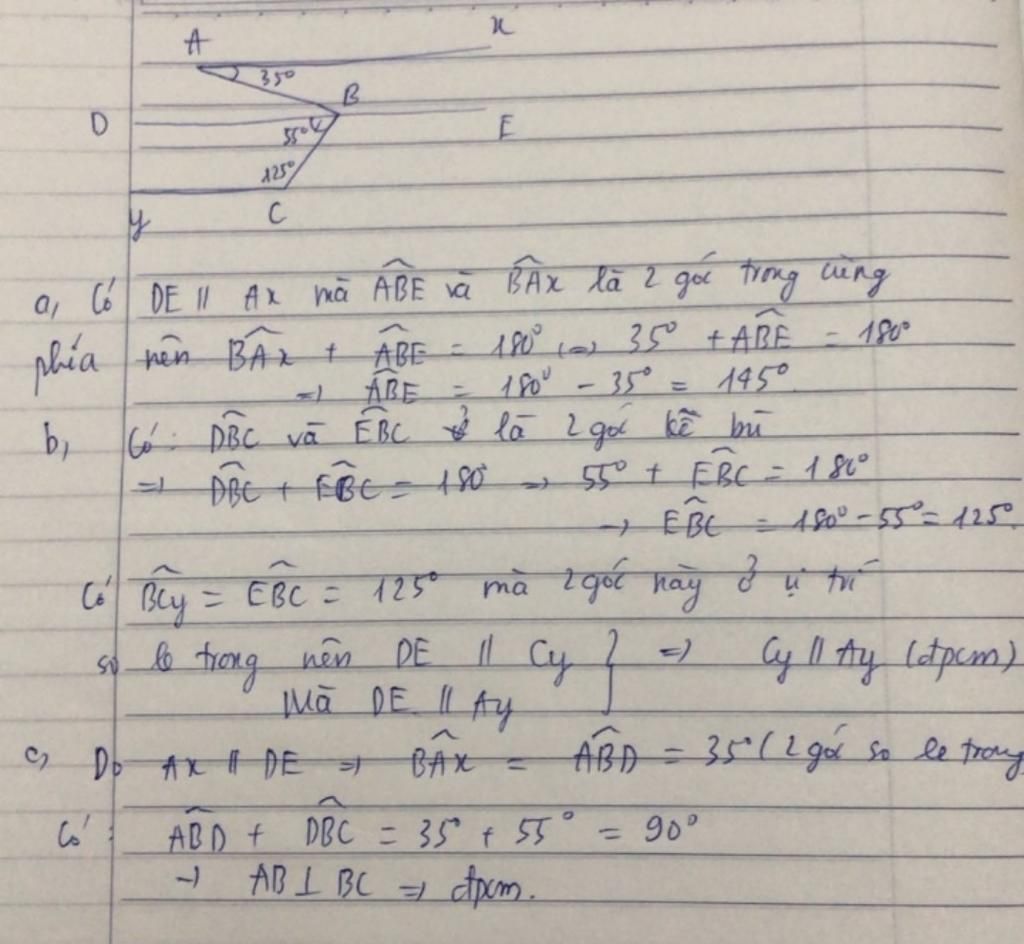 A x
35°
B
D 55° E
125°
y C
a, Có DE // Ax mà ABE và BAx là 2 góc trong cùng
phía nên BAx + ABE = 180° (=) 35° + ABE = 180°
=) ABE = 180° - 35° = 145°
b, Có: DBC và EBC là 2 góc kề bù
=) DBC + EBC = 180° → 55° + EBC = 180°
→ EBC = 180° - 55° = 125°.
Có BCy = EBC = 125° mà 2 góc này ở vị trí
so le trong nên DE // Cy } =) Cy // Ay (đpcm)
Mà DE // Ay
c, Do Ax // DE =) BAx = ABD = 35° (2 góc so le trong
Có: ABD + DBC = 35° + 55° = 90°
→ AB ⊥ BC =) đpcm.